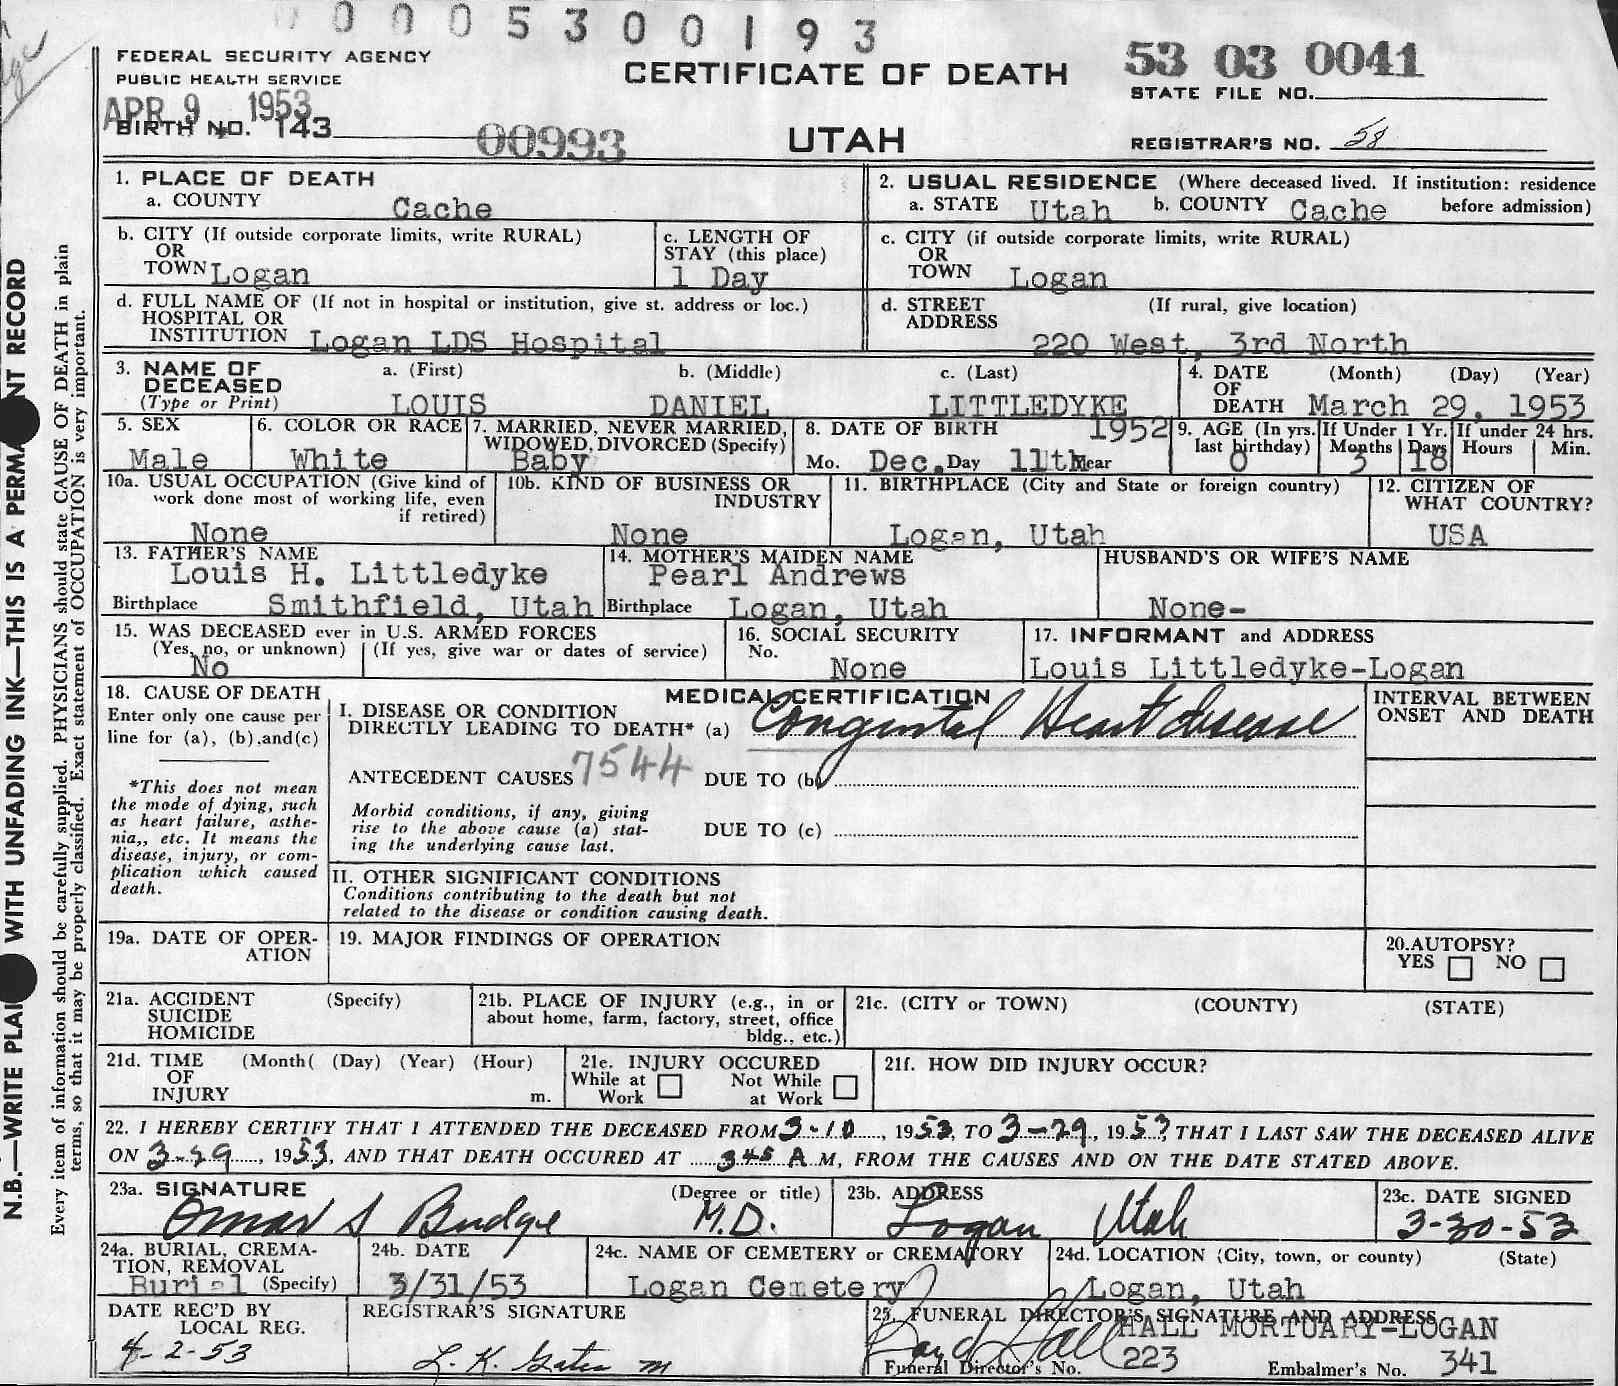 0 0 0 5 3 0 0 1 9 3
FEDERAL SECURITY AGENCY
PUBLIC HEALTH SERVICE
CERTIFICATE OF DEATH
53 03 0041
STATE FILE NO.
APR 9 1953
BIRTH NO. 143
00993
UTAH
REGISTRAR'S NO. 58
1. PLACE OF DEATH
a. COUNTY Cache
2. USUAL RESIDENCE (Where deceased lived. If institution: residence before admission)
a. STATE Utah b. COUNTY Cache
b. CITY (If outside corporate limits, write RURAL)
OR
TOWN Logan
c. LENGTH OF
STAY (this place)
1 Day
c. CITY (if outside corporate limits, write RURAL)
OR
TOWN Logan
d. FULL NAME OF (If not in hospital or institution, give st. address or loc.)
HOSPITAL OR
INSTITUTION Logan LDS Hospital
d. STREET (If rural, give location)
ADDRESS
220 West, 3rd North
3. NAME OF
DECEASED
(Type or Print)
a. (First) b. (Middle) c. (Last)
LOUIS DANIEL LITTLEDYKE
4. DATE (Month) (Day) (Year)
OF
DEATH March 29, 1953
5. SEX
Male
6. COLOR OR RACE
White
7. MARRIED, NEVER MARRIED,
WIDOWED, DIVORCED (Specify)
Baby
8. DATE OF BIRTH 1952
Mo. Dec. Day 11th Year
9. AGE (In yrs. last birthday) 0
If Under 1 Yr. Months 3 Days 18
If under 24 hrs. Hours Min.
10a. USUAL OCCUPATION (Give kind of
work done most of working life, even
if retired)
None
10b. KIND OF BUSINESS OR
INDUSTRY
None
11. BIRTHPLACE (City and State or foreign country)
Logan, Utah
12. CITIZEN OF
WHAT COUNTRY?
USA
13. FATHER'S NAME
Louis H. Littledyke
Birthplace Smithfield, Utah
14. MOTHER'S MAIDEN NAME
Pearl Andrews
Birthplace Logan, Utah
HUSBAND'S OR WIFE'S NAME
None-
15. WAS DECEASED ever in U.S. ARMED FORCES
(Yes, no, or unknown) (If yes, give war or dates of service)
No
16. SOCIAL SECURITY
No.
None
17. INFORMANT and ADDRESS
Louis Littledyke-Logan
18. CAUSE OF DEATH
Enter only one cause per
line for (a), (b).and(c)
*This does not mean
the mode of dying, such
as heart failure, asthe-
nia,, etc. It means the
disease, injury, or com-
plication which caused
death.
MEDICAL CERTIFICATION
I. DISEASE OR CONDITION
DIRECTLY LEADING TO DEATH* (a) Congenital Heart disease
ANTECEDENT CAUSES 7544 DUE TO (b)
Morbid conditions, if any, giving
rise to the above cause (a) stat-
ing the underlying cause last.
DUE TO (c)
II. OTHER SIGNIFICANT CONDITIONS
Conditions contributing to the death but not
related to the disease or condition causing death.
INTERVAL BETWEEN
ONSET AND DEATH
19a. DATE OF OPER-
ATION
19. MAJOR FINDINGS OF OPERATION
20.AUTOPSY?
YES NO
21a. ACCIDENT (Specify)
SUICIDE
HOMICIDE
21b. PLACE OF INJURY (e.g., in or
about home, farm, factory, street, office
bldg., etc.)
21c. (CITY or TOWN) (COUNTY) (STATE)
21d. TIME (Month( (Day) (Year) (Hour)
OF
INJURY m.
21e. INJURY OCCURED
While at Work Not While at Work
21f. HOW DID INJURY OCCUR?
22. I HEREBY CERTIFY THAT I ATTENDED THE DECEASED FROM 3-10, 1953, TO 3-29, 1953, THAT I LAST SAW THE DECEASED ALIVE
ON 3-29, 1953, AND THAT DEATH OCCURED AT 3:45 A M, FROM THE CAUSES AND ON THE DATE STATED ABOVE.
23a. SIGNATURE (Degree or title)
Omar S Budge M.D.
23b. ADDRESS
Logan Utah
23c. DATE SIGNED
3-30-53
24a. BURIAL, CREMA-
TION, REMOVAL
Burial (Specify)
24b. DATE
3/31/53
24c. NAME OF CEMETERY or CREMATORY
Logan Cemetery
24d. LOCATION (City, town, or county) (State)
Logan, Utah
DATE REC'D BY
LOCAL REG.
4-2-53
REGISTRAR'S SIGNATURE
L. K. Gates m
25. FUNERAL DIRECTOR'S SIGNATURE AND ADDRESS
HALL MORTUARY-LOGAN
Hall
Funeral Director's No. 223 Embalmer's No. 341
N.B.—WRITE PLAI WITH UNFADING INK—THIS IS A PERMA NT RECORD
Every item of information should be carefully supplied. PHYSICIANS should state CAUSE OF DEATH in plain
terms, so that it may be properly classified. Exact statement of OCCUPATION is very important.